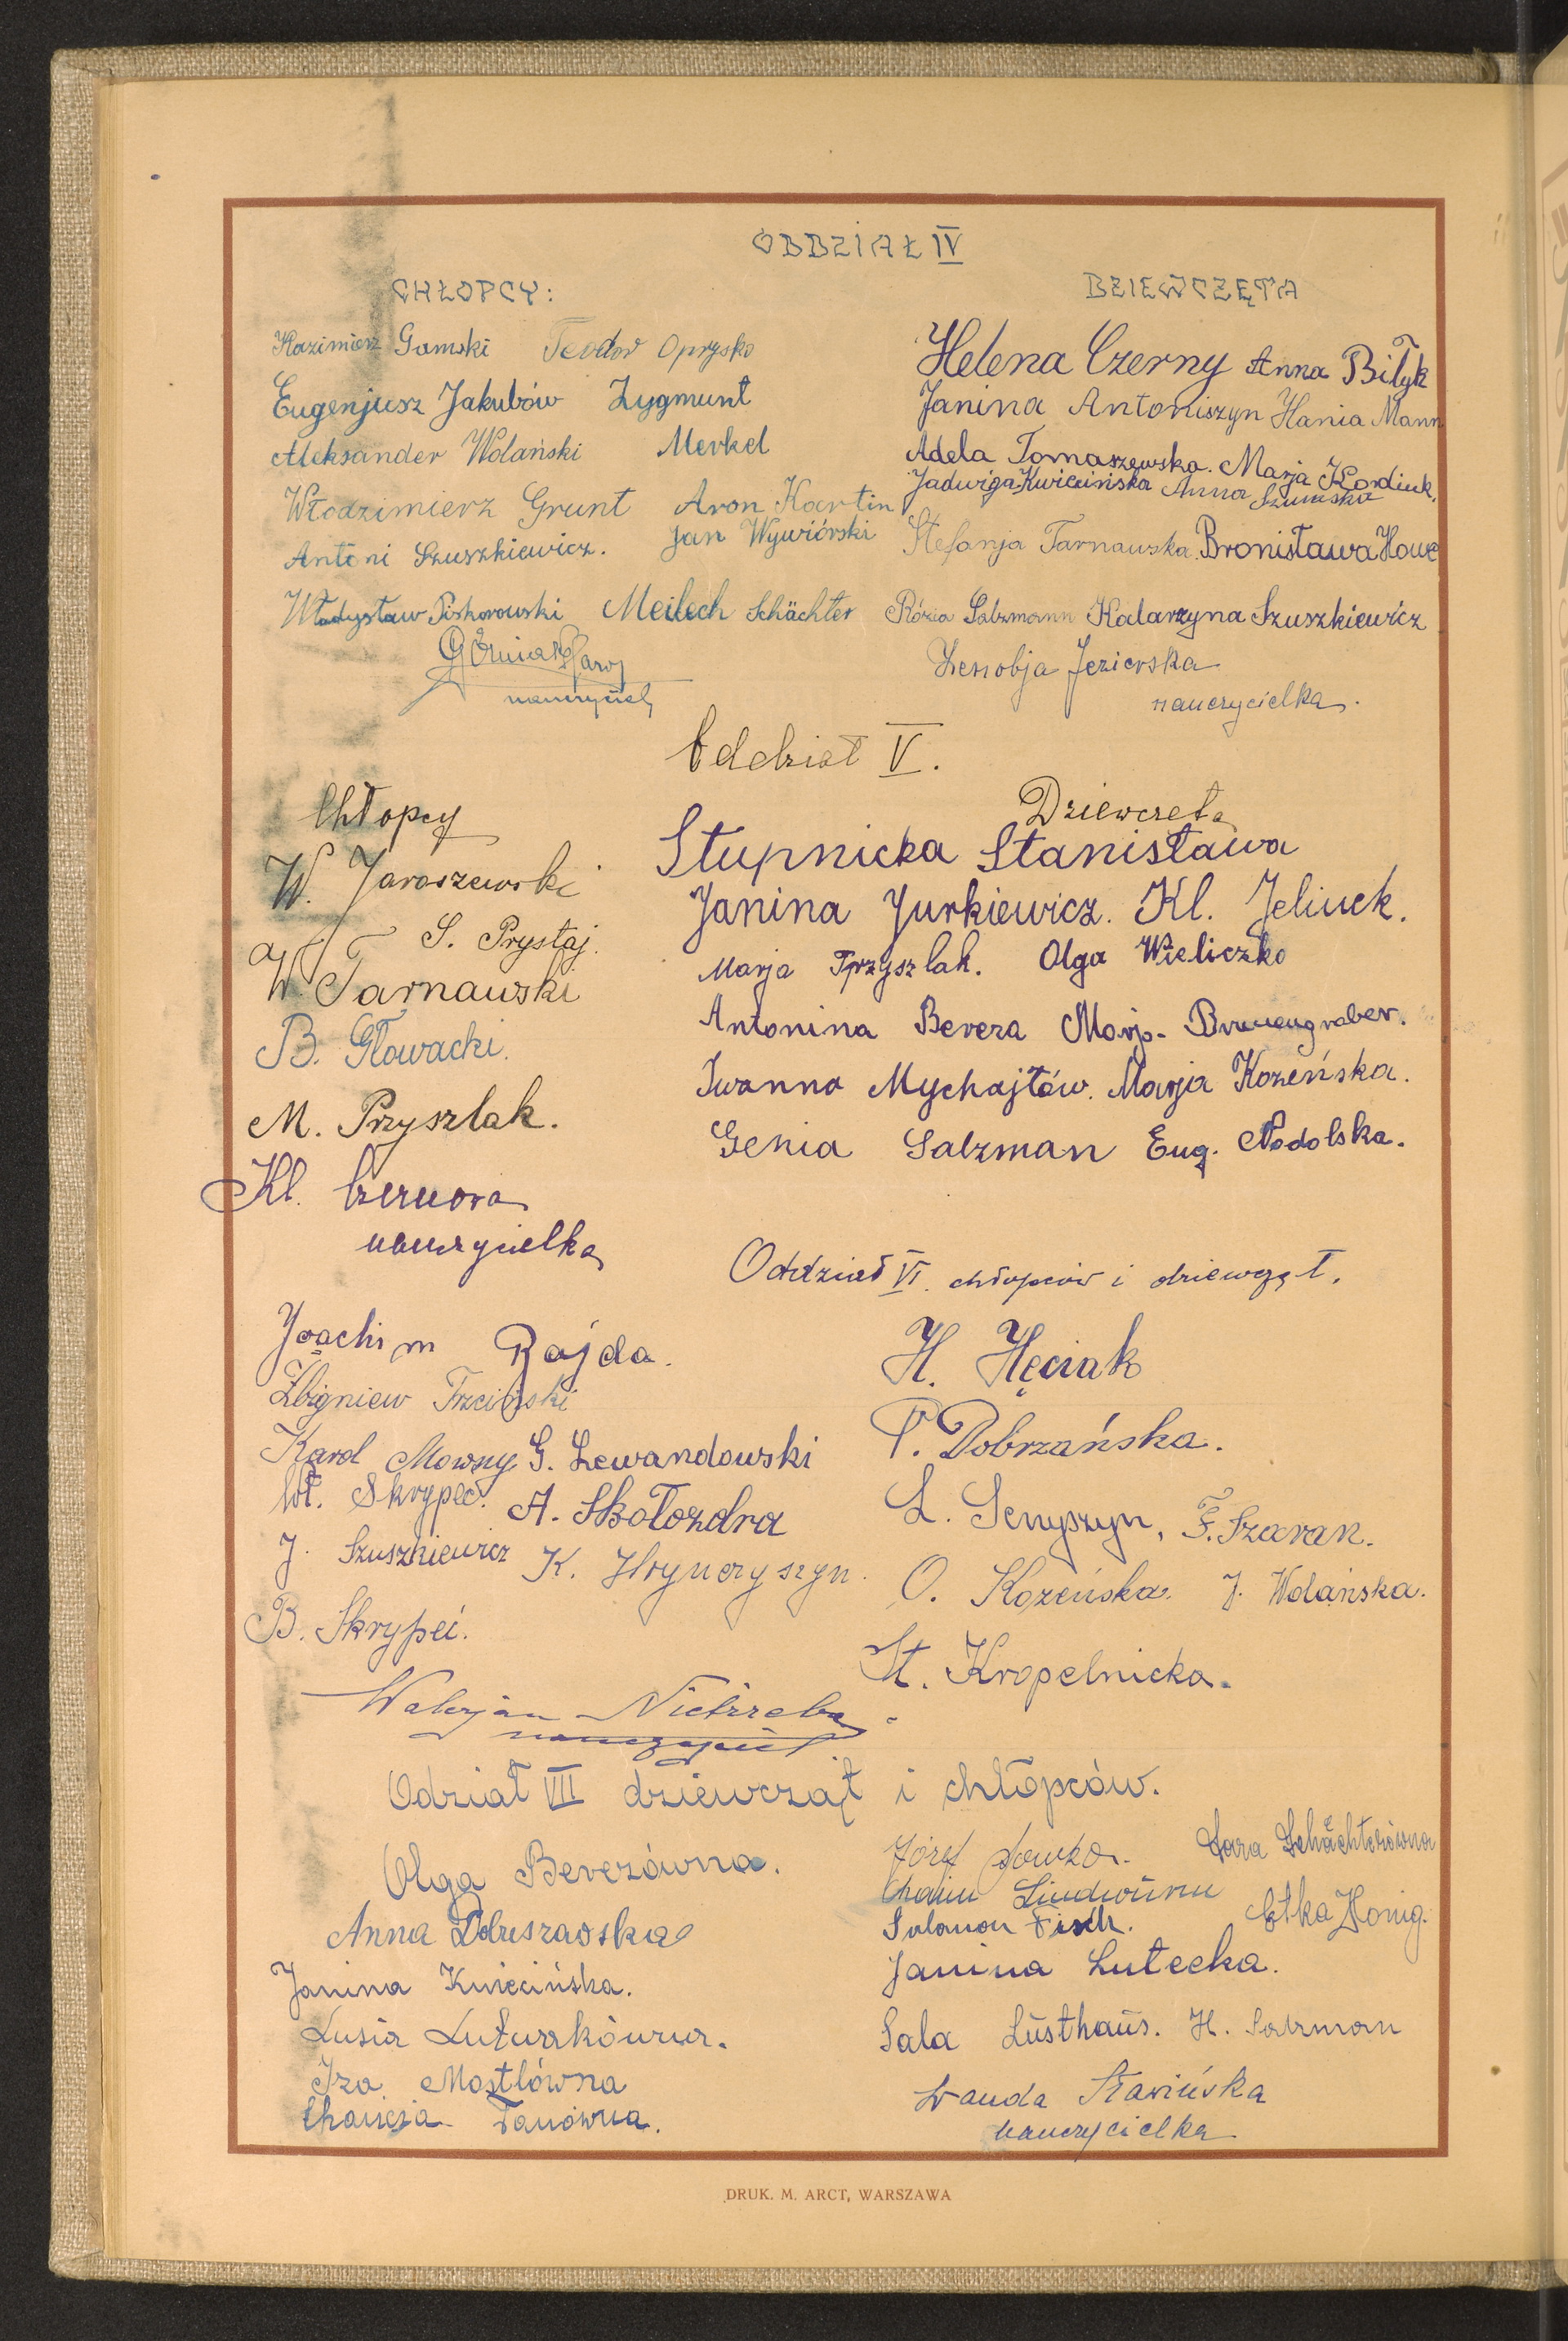 ODDZIAŁ IV
CHŁOPCY:
Kazimierz Gamski Teodor Oprysko
Eugenjusz Jakubów Zygmunt
Aleksander Wolański Merkel
Włodzimierz Grunt Aron Kartin
Antoni Szuszkiewicz. Jan Wywiórski
Władysław Piskorowski Meilech Schächter
nauczyciel
DZIEWCZĘTA
Helena Czerny Anna Biłyk
Janina Antoniszyn Hania Mann
Adela Tomaszewska. Marja Kordiuk.
Jadwiga Kwiecińska Anna Szumska
Stefanja Tarnawska. Bronisława Howe
Rózia Salzmann Katarzyna Szuszkiewicz
Zenobja Jezierska
nauczycielka.
Oddział V.
Chłopcy
W. Jaroszewski
S. Prystaj.
W. Tarnawski
B. Głowacki.
M. Przyszlak.
Kl. Czernowa
nauczycielka
Dziewczęta
Stupnicka Stanisława
Janina Jurkiewicz. Kl. Jelinek.
Marja Przyszlak. Olga Wieliczko
Antonina Bereza Marja
Iwanna Mychajłów. Marja Kozeńska.
Genia Salzman Eug. Podolska.
Oddział VI. chłopców i dziewcząt.
Joachim Rajda.
Zbigniew Trzciński
Karol Mowny G. Lewandowski
Wł. Skrypeć. A. Skołozdra
J. Szuszkiewicz K. Hrynczyszyn.
B. Skrypeć.
Walerjan Nietrzeba
nauczyciel
H. Hęciak
P. Dobrzańska.
L. Senyszyn, F. Szaran.
O. Kozeńska. J. Wolańska.
St. Kropelnicka.
Odział VII dziewcząt i chłopców.
Olga Berezówna.
Anna
Janina Kwiecińska.
Lusia
Iza Mostlówna
Tanówna.
Józef Sowka. Sara Schächterówna
Chaim
Salomon Fisch. Etka Honig.
Janina Lutecka.
Sala Lusthaus. H. Salzman
Wanda
nauczycielka
DRUK. M. ARCT, WARSZAWA